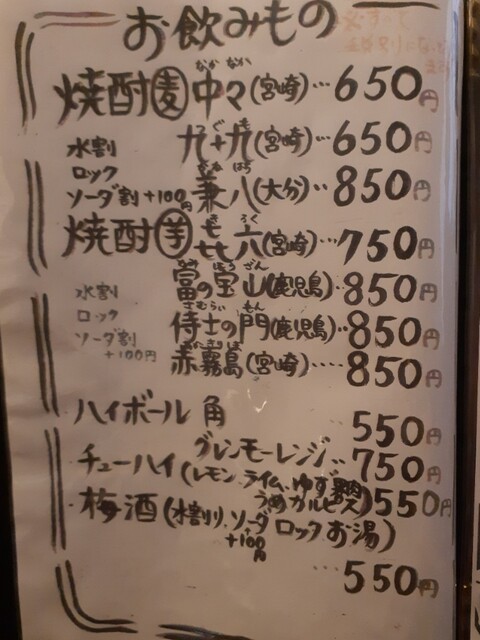 お飲みもの
焼酎 麦 中々(宮崎)…650円
なか なか
九十九(宮崎)…650円
ぐ も
水割
ロック
ソーダ割+100円
兼八(大分)…850円
かね はち
焼酎 芋 㐂六(宮崎)…750円
き ろく
富の宝山(鹿児島)850円
とみ ほう ざん
水割
ロック
ソーダ割
+100円
侍士の門(鹿児島)…850円
さむらい もん
赤霧島(宮崎)…850円
あかきりしま
ハイボール 角 550円
グレンモーレンジ…750円
チューハイ(レモン、ライム、ゆず
うめ カルピス)550円
梅酒(水割り、ソーダ ロック お湯)
+100円
…550円